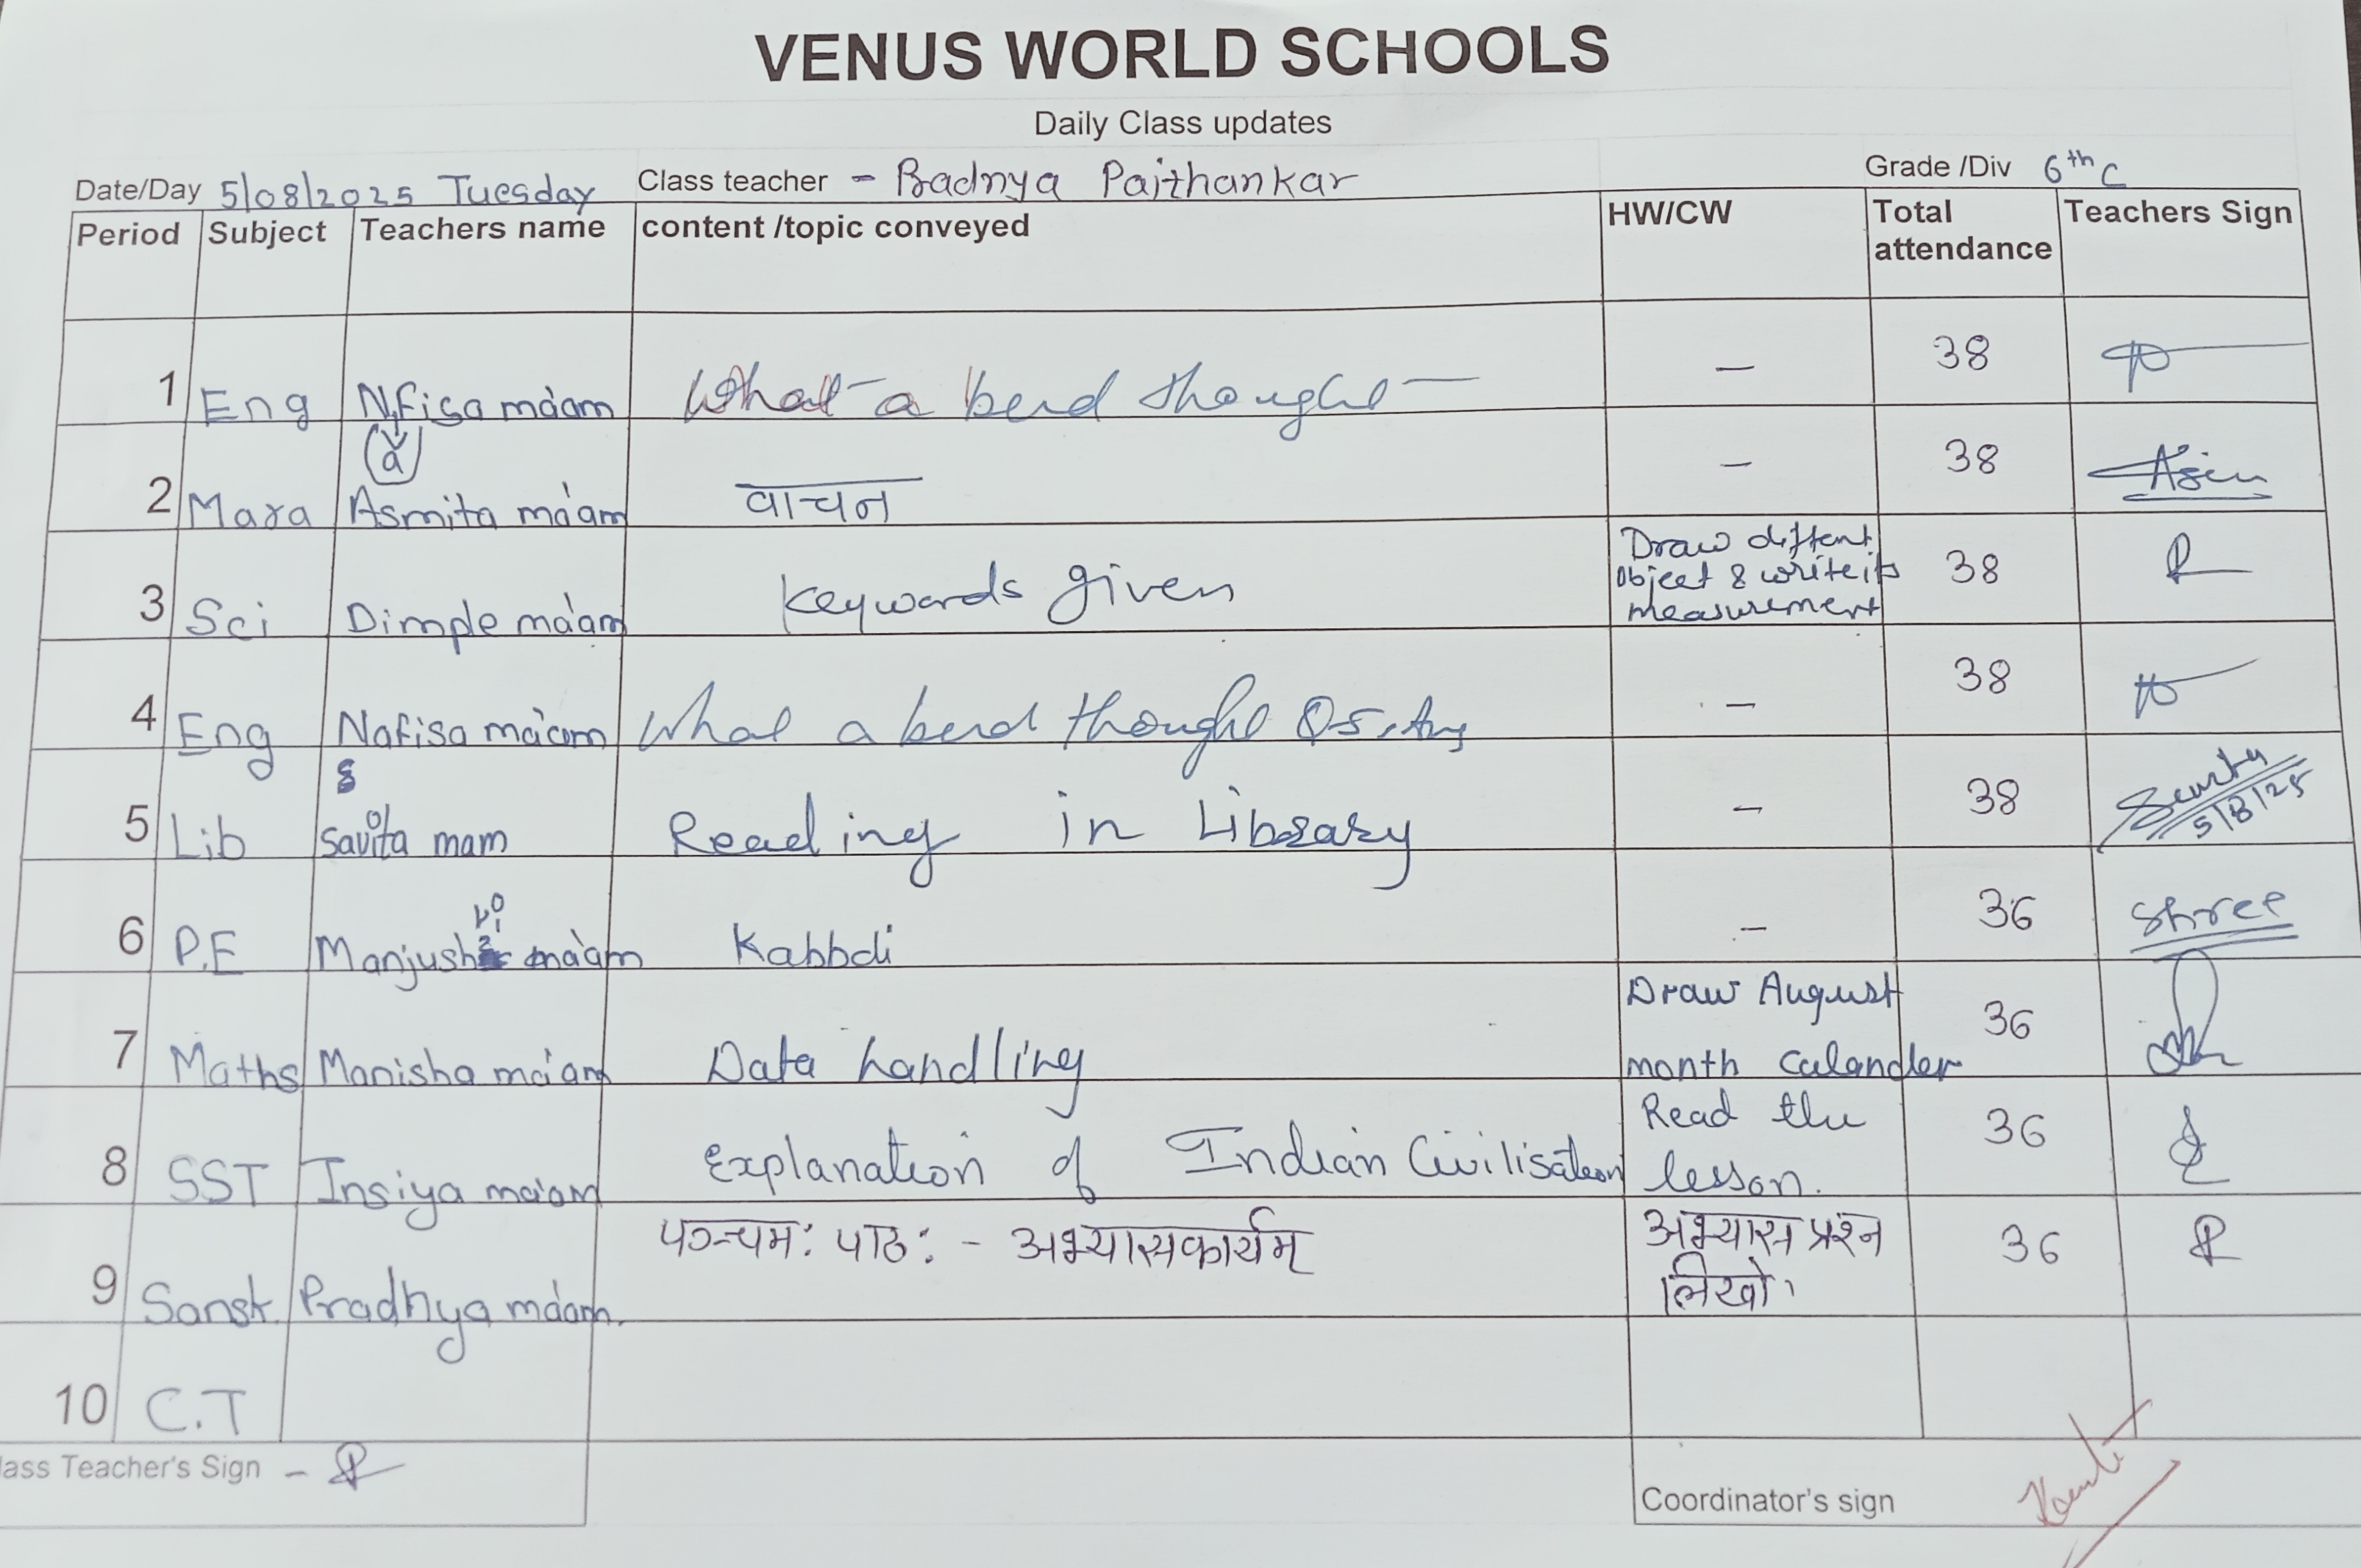 VENUS WORLD SCHOOLS
Daily Class updates
Date/Day 5/08/2025 Tuesday Class teacher - Pradnya Paithankar Grade /Div 6th C
Period Subject Teachers name content /topic conveyed HW/CW Total attendance Teachers Sign
1 Eng Nafisa ma'am What a bird thought — 38
2 Mara Asmita ma'am वाचन - 38
3 Sci Dimple ma'am Keywords given Draw diffent object & write its measurement 38
4 Eng Nafisa ma'am What a bird thought — 38
5 Lib Savita mam Reading in Library - 38 5/8/25
6 P.E Manjushri ma'am Kabbdi - 36 Shree
7 Maths Manisha ma'am Data handling Draw August month Calander 36
8 SST Insiya ma'am Explanation of Indian Civilisation Read the lesson. 36
9 Sansk. Pradhya ma'am. पञ्चमः पाठः - अभ्यासकार्यम् अभ्यास प्रश्न लिखो। 36
10 C.T
lass Teacher's Sign -
Coordinator's sign